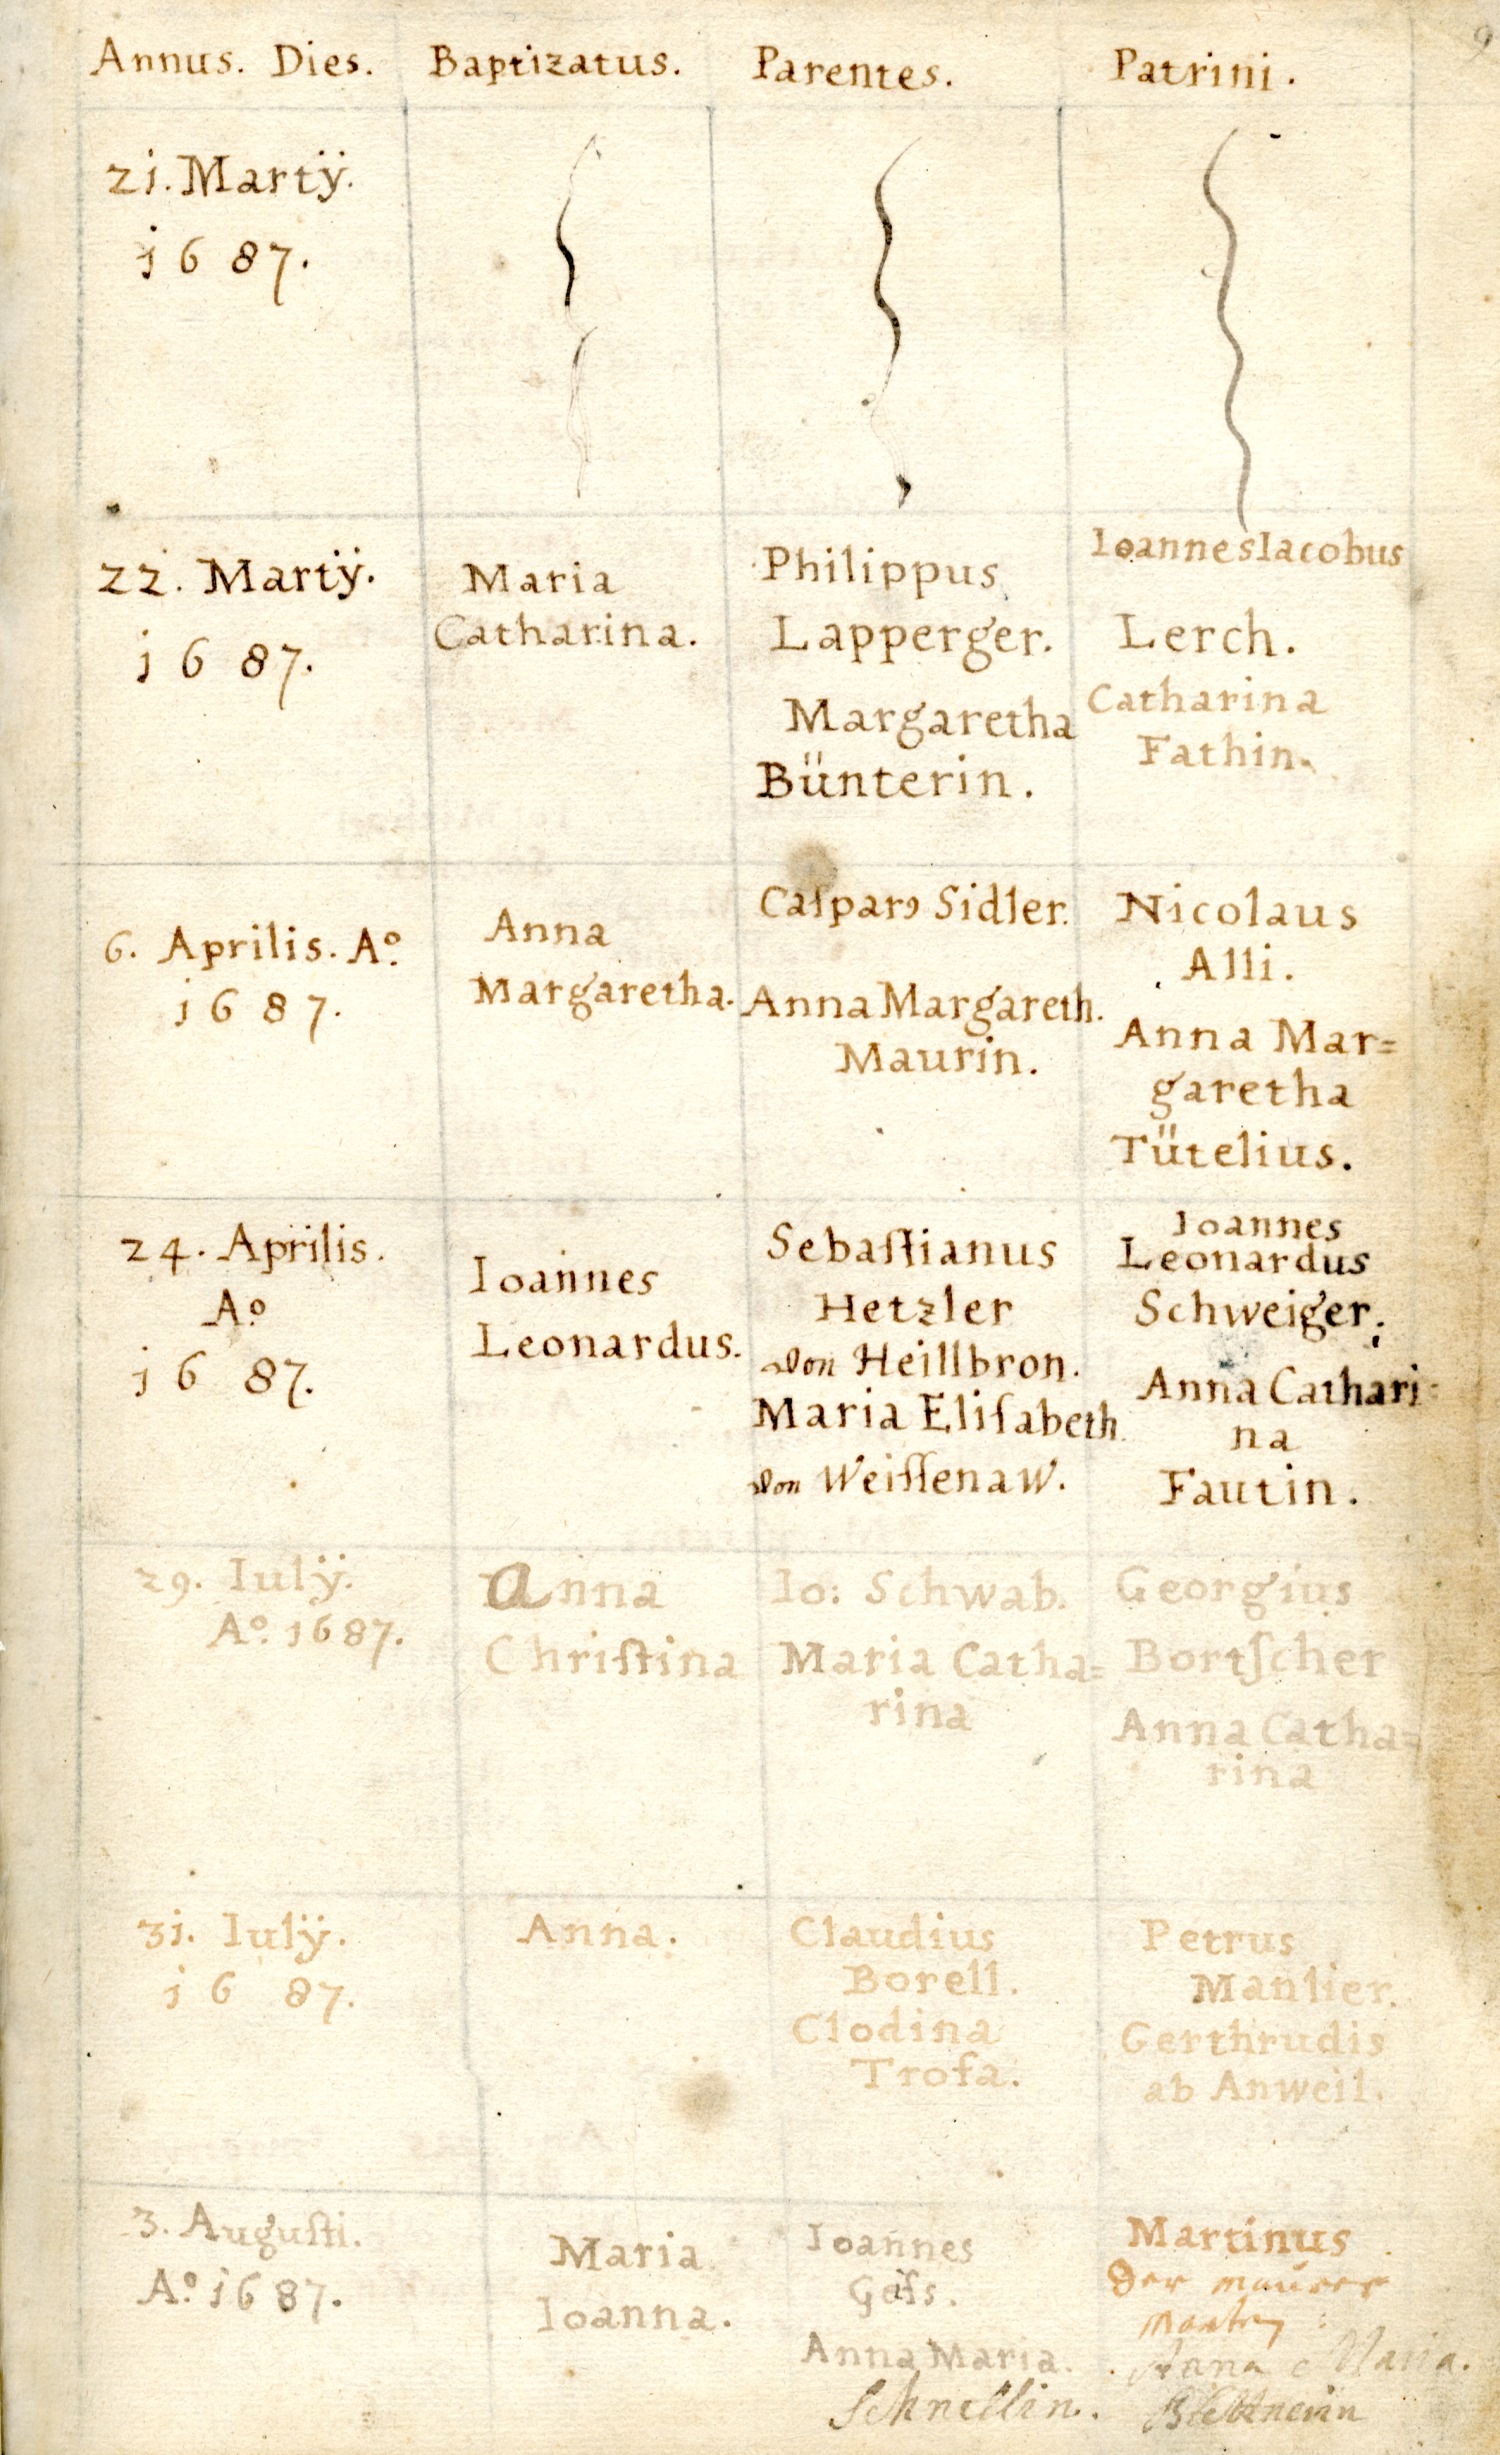 9
Annus. Dies. Baptizatus. Parentes. Patrini.
21. Martÿ.
1687.
22. Martÿ.
1687.
Maria
Catharina.
Philippus
Lapperger.
Margaretha
Bünterin.
Ioannes Iacobus
Lerch.
Catharina
Fathin.
6. Aprilis. Aº.
1687.
Anna
Margaretha.
Caſparꝰ Sidler.
Anna Margareth.
Maurin.
Nicolaus
Alli.
Anna Mar=
garetha
Tütelius.
24. Aprilis.
Aº.
1687.
Ioannes
Leonardus.
Sebaſtianus
Hetzler
von Heillbron.
Maria Eliſabeth
von Weiſſenaw.
Ioannes
Leonardus
Schweiger.
Anna Cathari=
na
Fautin.
29. Iulÿ.
Aº. 1687.
Anna
Chriſtina
Io: Schwab.
Maria Catha=
rina
Georgius
Bortſcher
Anna Catha=
rina
31. Iulÿ.
1687.
Anna.
Claudius
Borell.
Clodina
Trofa.
Petrus
Manlier.
Gerthrudis
ab Anweil.
3. Auguſti.
Aº. 1687.
Maria
Ioanna.
Ioannes
Anna Maria.
Schnellin.
Martinus
Der maurer
Anna Maria.